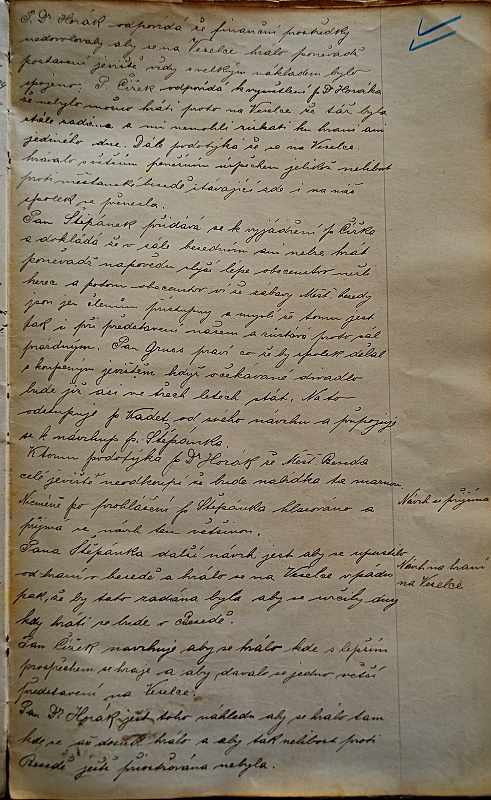 P. Dr Horák odpovídá že finanční prostředky
nedovolovaly aby se na Veselce hrálo poněvadž
postavení jeviště vždy s velkým nákladem bylo
spojeno. P. Čížek odpovídá k vysvětlení p. Dr Horáka
že nebylo možno hráti proto na Veselce že sál byl
stále zadán a mi nemohli získati ku hraní ani
jediného dne. Dále podotýká že se na Veselce
hrávalo s větším peněžním úspěchem jelikož nelibost
proti měšťanské besedě stávající zde i na náš
spolek se přenesla.
Pan Štěpánek přidává se k vyjádření p. Čížka
a dokládá že v sále besedním ani nelze hrát
poněvadž nápovědu slyší lépe obecenstvo nežli
herec a potom obecenstvo ví že zábavy Měšť. besedy
jsou jen členům přístupny a myslí že tomu jest
tak i při představení našem a zůstává proto sál
prázdným. Pan Gruss praví co že by spolek dělal
s koupeným jevištěm když očekávané divadlo
bude již asi ve třech letech stát. Na to
odstupuje p. Kadet od svého návrhu a připojuje
se k návrhu p. Štěpánka.
K tomu podotýká p. Dr Horák že Měšť. Beseda
celé jeviště neodkoupí že bude nabídka ta marnou.
Nicméně po prohlášení p. Štěpánka hlasováno a
přijma se návrh ten většinou.
Návrh se přijímá
Pana Štěpánka další návrh jest aby se upustilo
od hraní v besedě a hrálo se na Veselce v pádu
pak, že by tato zadána byla aby se určily dny
kdy hráti se bude v Besedě.
Návrh na hraní
na Veselce
Pan Čížek navrhuje aby se hrálo kde s lepším
prospěchem se hraje a aby dávalo se jedno větší
představení na Veselce.
Pan Dr. Horák jest toho náhledu aby se hrálo tam
kde se až dosud hrálo a aby tak nelibost proti
Besedě ještě přiostřována nebyla.